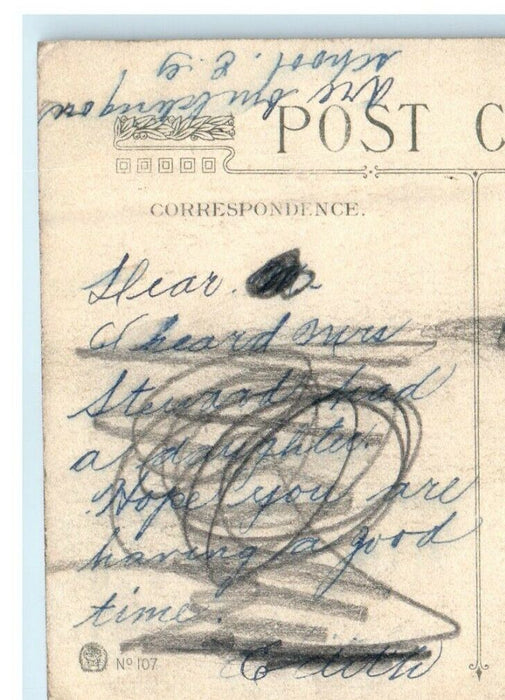 POST C
CORRESPONDENCE.
Dear
I heard Mrs
Steward had
a daughter.
Hope you are
having a good
time.
Edith
Nº 107
are building our
school. E.G